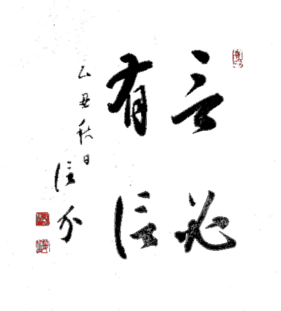 言必
有信
乙丑秋日
信介